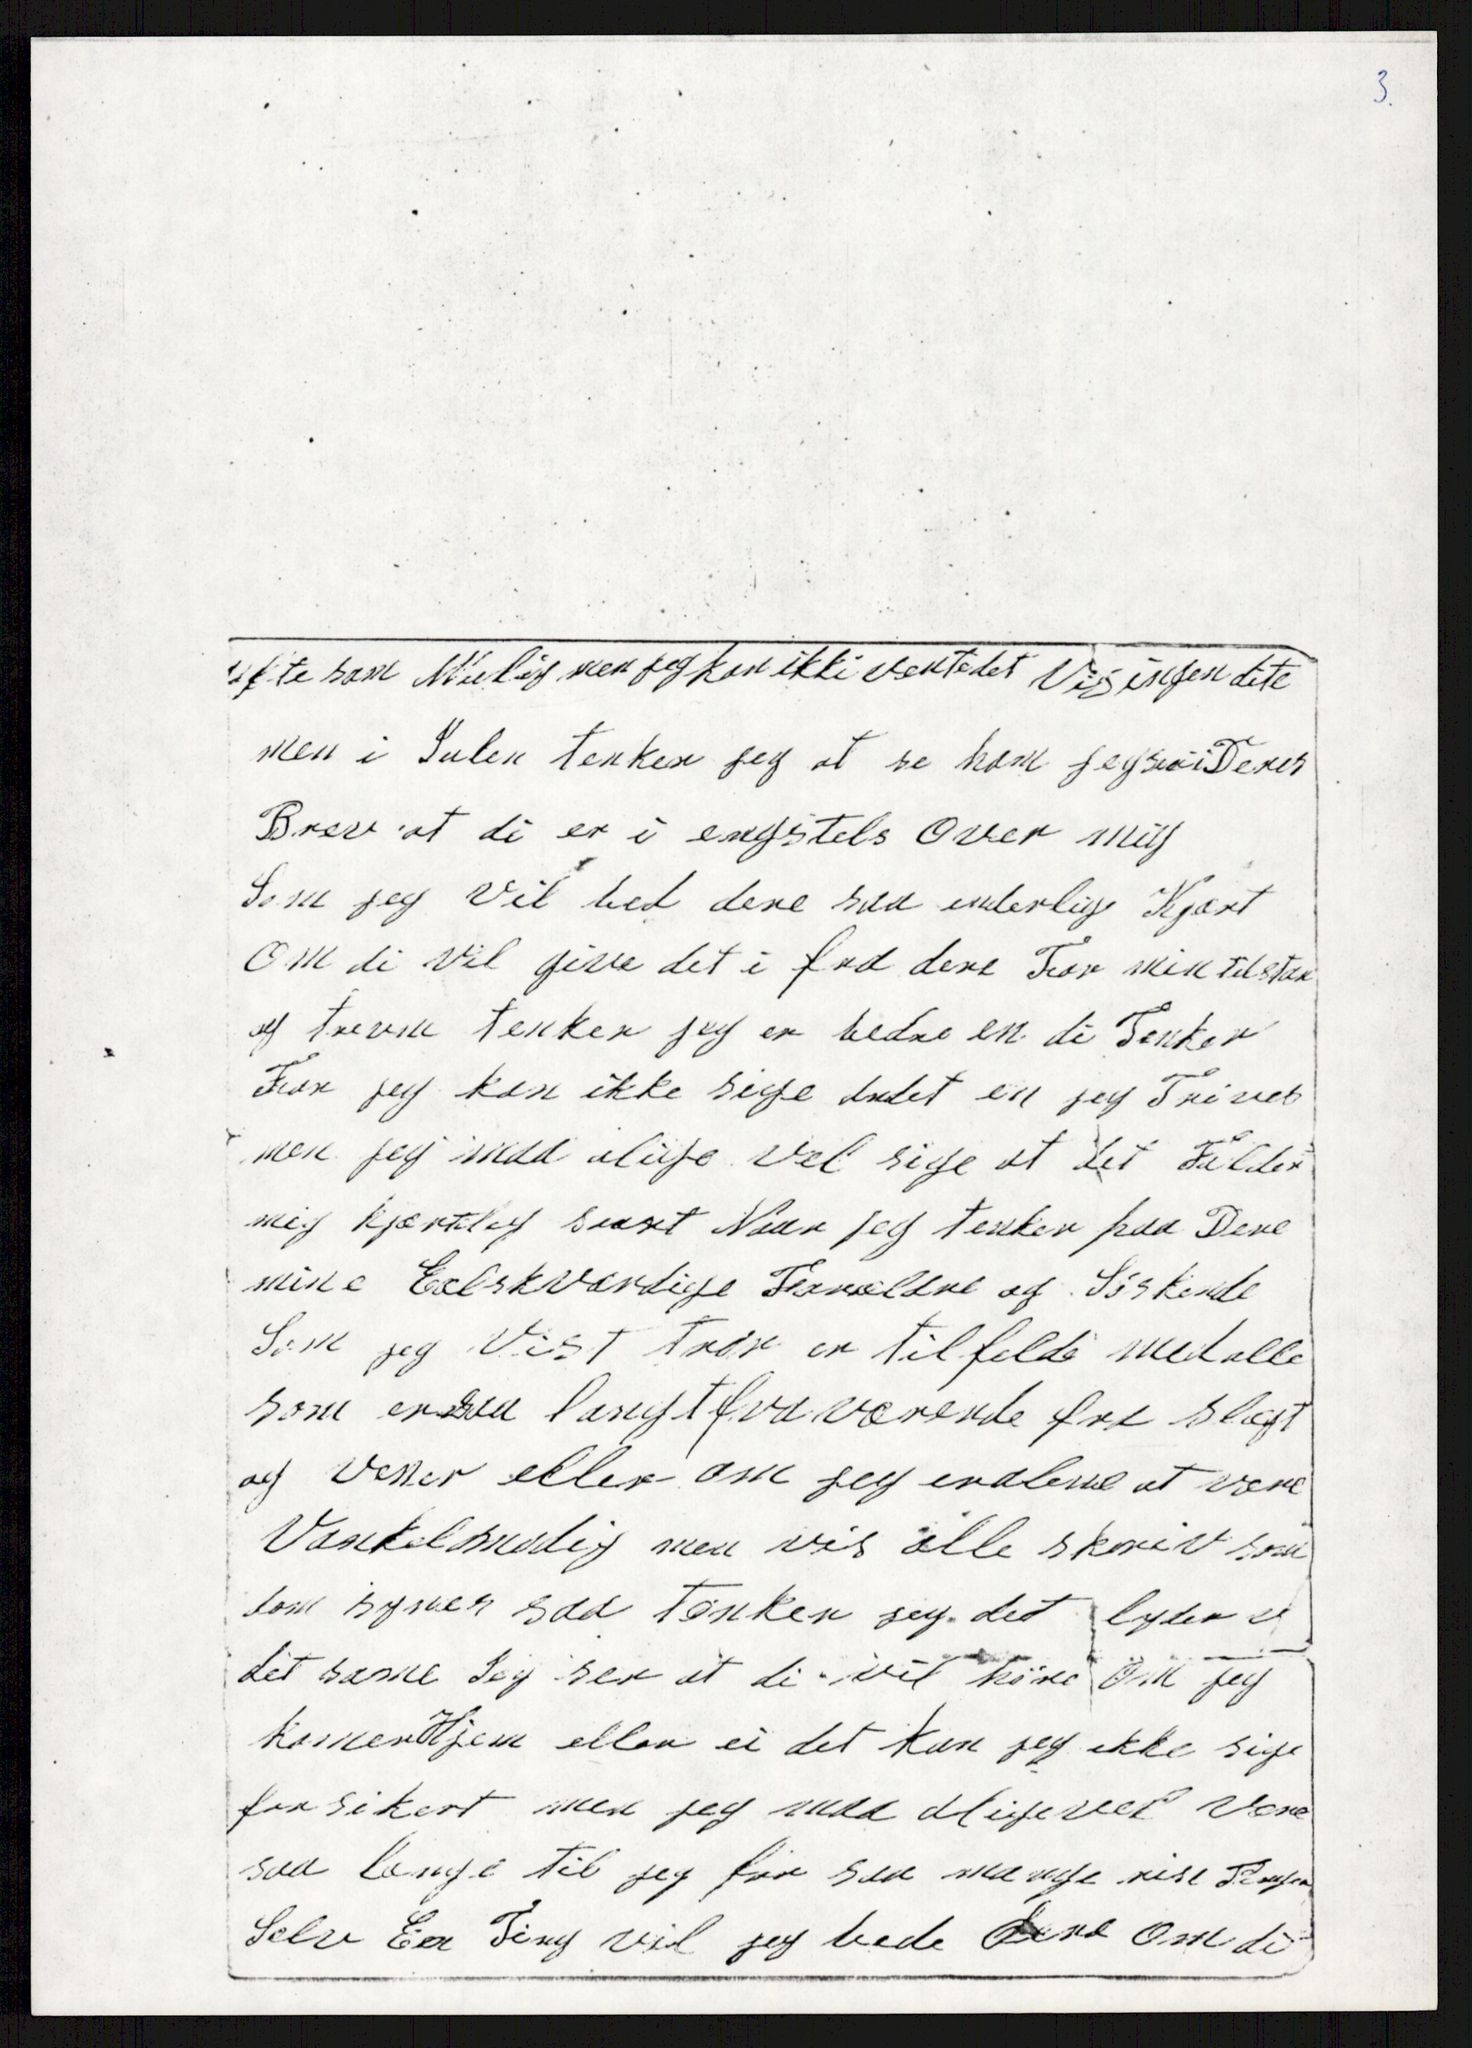 3.
ofte som Muelig men jeg kan ikki vente det Vis ingen dite
men i Julen tenker jeg at se ham jeg ser i Deres
Brev at di er i engstels Over mig
Som jeg Vil bed dere saa enderlige Kjært
Om di Vil give det i fra dere Foor min tilstan
og trevm tenker jeg er bedre en di Tenker
Foor jeg kan ikke sige andet en jeg Trives
men jeg maa alige vel sige at det Falder
mig kjærtelig svart Naar jeg tenker paa Dere
mine Eelskværdige Forældre og Söskende
Som jeg Vist tror er tilfelde med alle
som er saa langt fra værende fra slægt
og venner eller om jeg er alene at være
Vankelmodig men vis alle skeriv som
dom synes saa tenker jeg det lyder
det same Jeg ser at di vil höre Om jeg
komer Hjem eller ei det kan jeg ikke sige
for sikert men jeg maa aligevel være
saa længe til jeg får saa mange rise Penger
Selv En Ting vil jeg bede Dere Om di